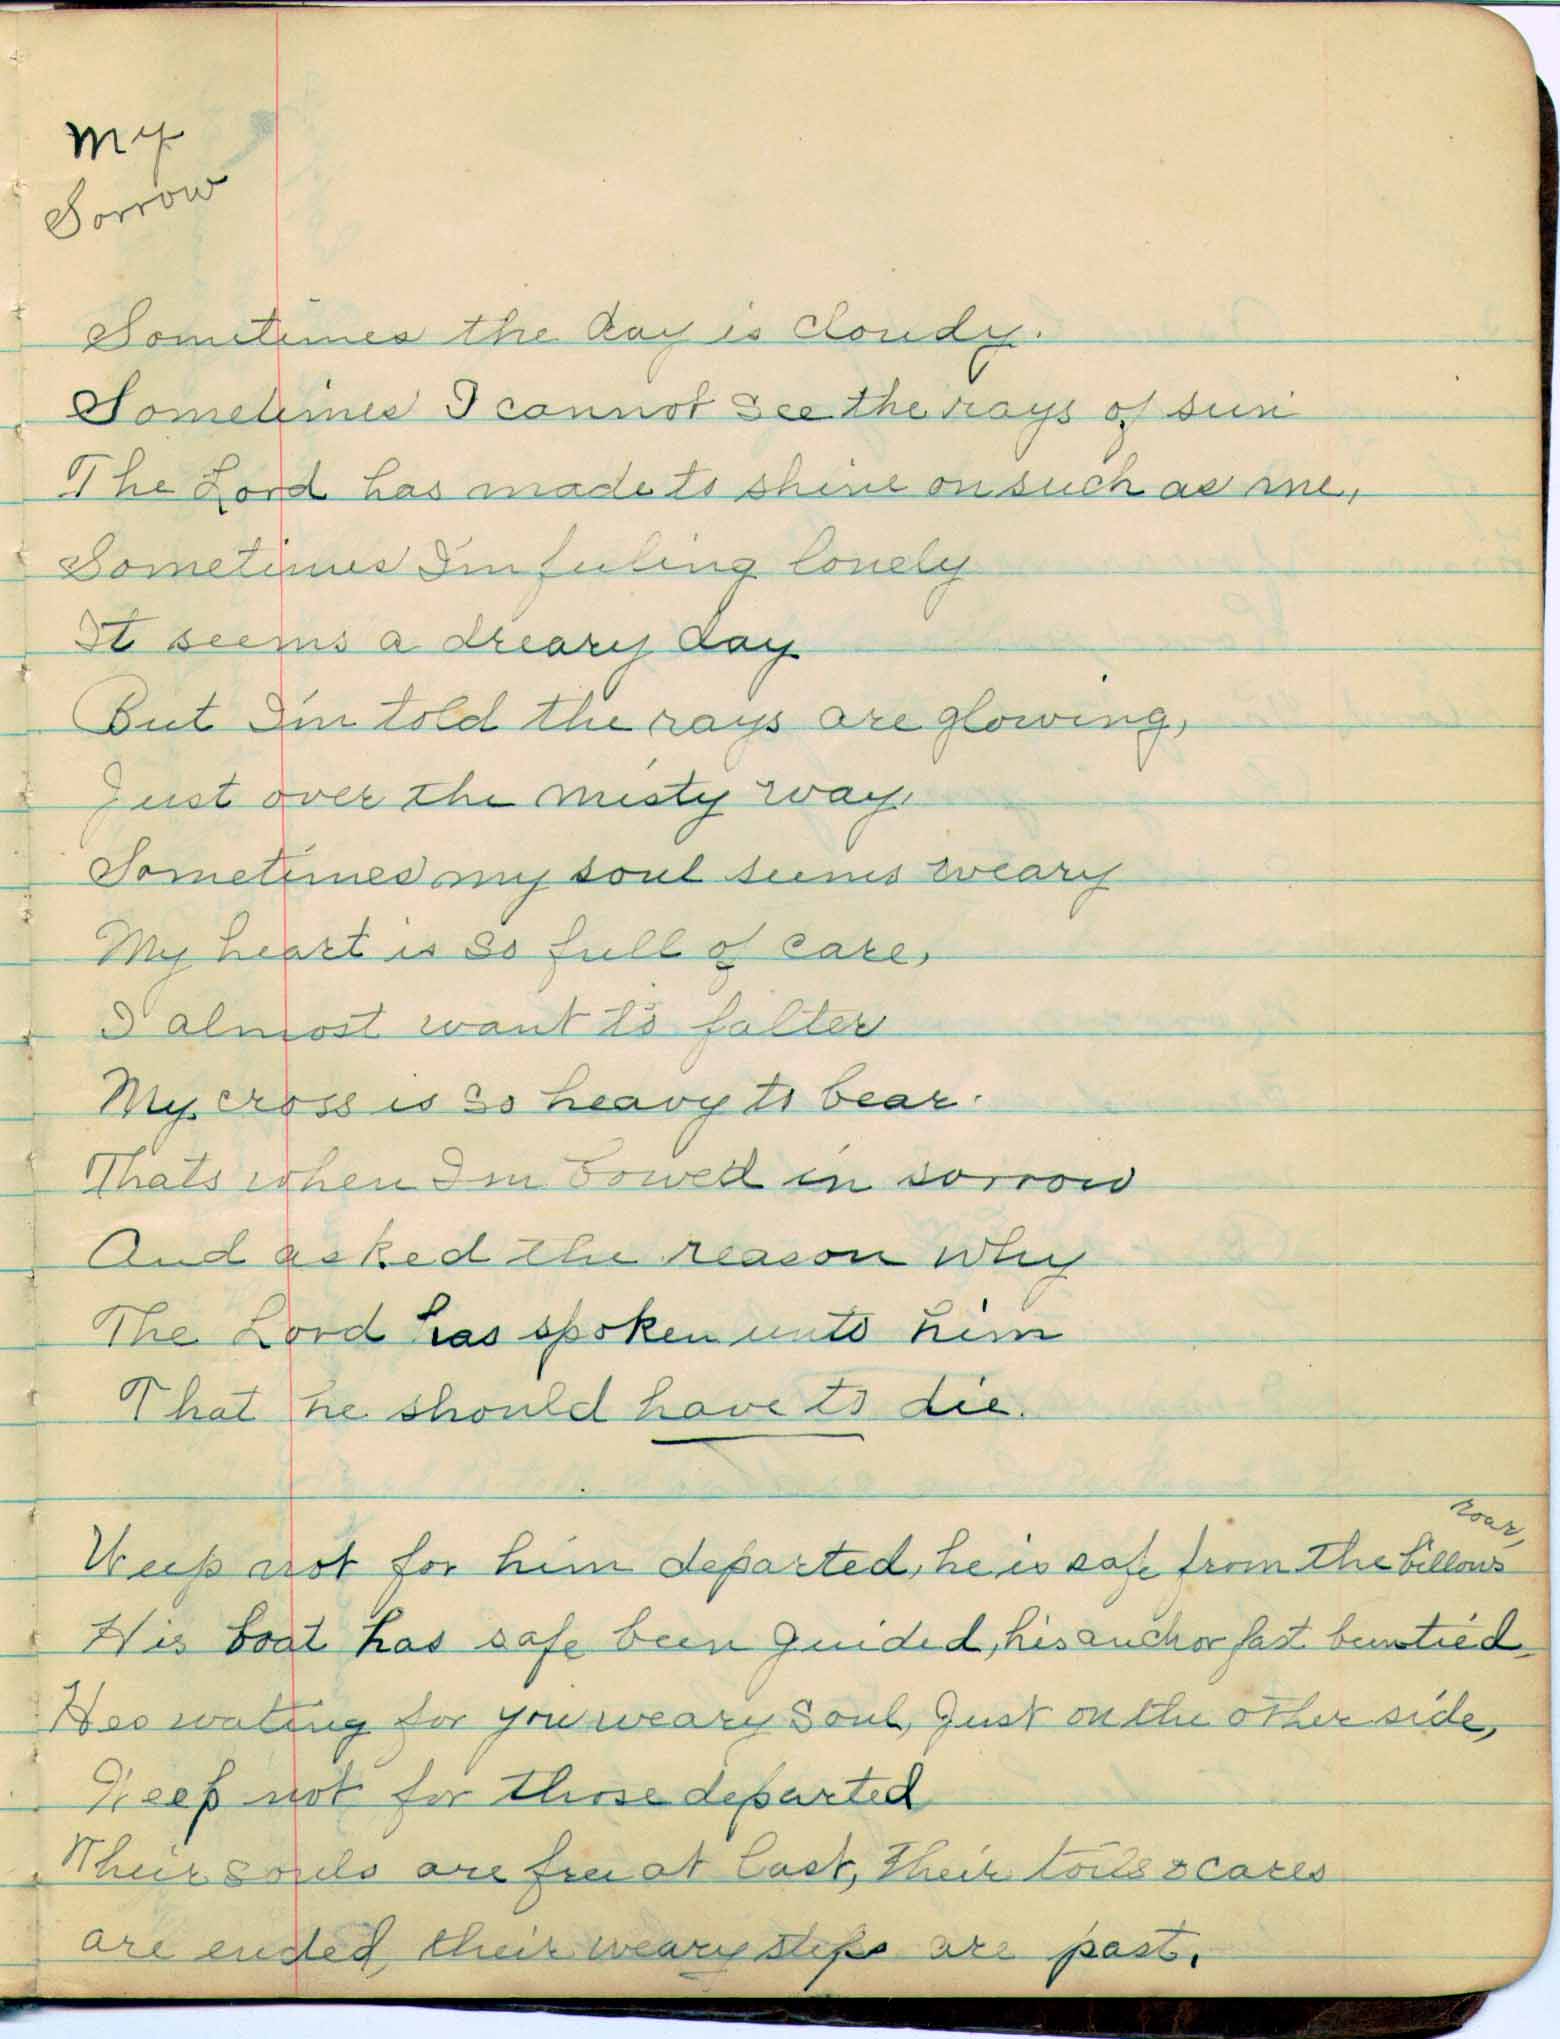 My
Sorrow
Sometimes the day is cloudy.
Sometimes I cannot see the rays of sun
The Lord has made to shine on such as me,
Sometimes I'm feeling lonely
It seems a dreary day
But I'm told the rays are glowing,
Just over the misty way,
Sometimes my soul seems weary
My heart is so full of care,
I almost want to falter
My cross is so heavy to bear.
Thats when I'm bowed in sorrow
And asked the reason why
The Lord has spoken unto him
That he should have to die.
Weep not for him departed, he is safe from the billows roar,
His boat has safe been guided, his anchor fast been tied,
Hes wating for you weary soul, Just on the other side,
Weep not for those departed
Their souls are free at last, Their toils & cares
are ended, their weary steps are past.